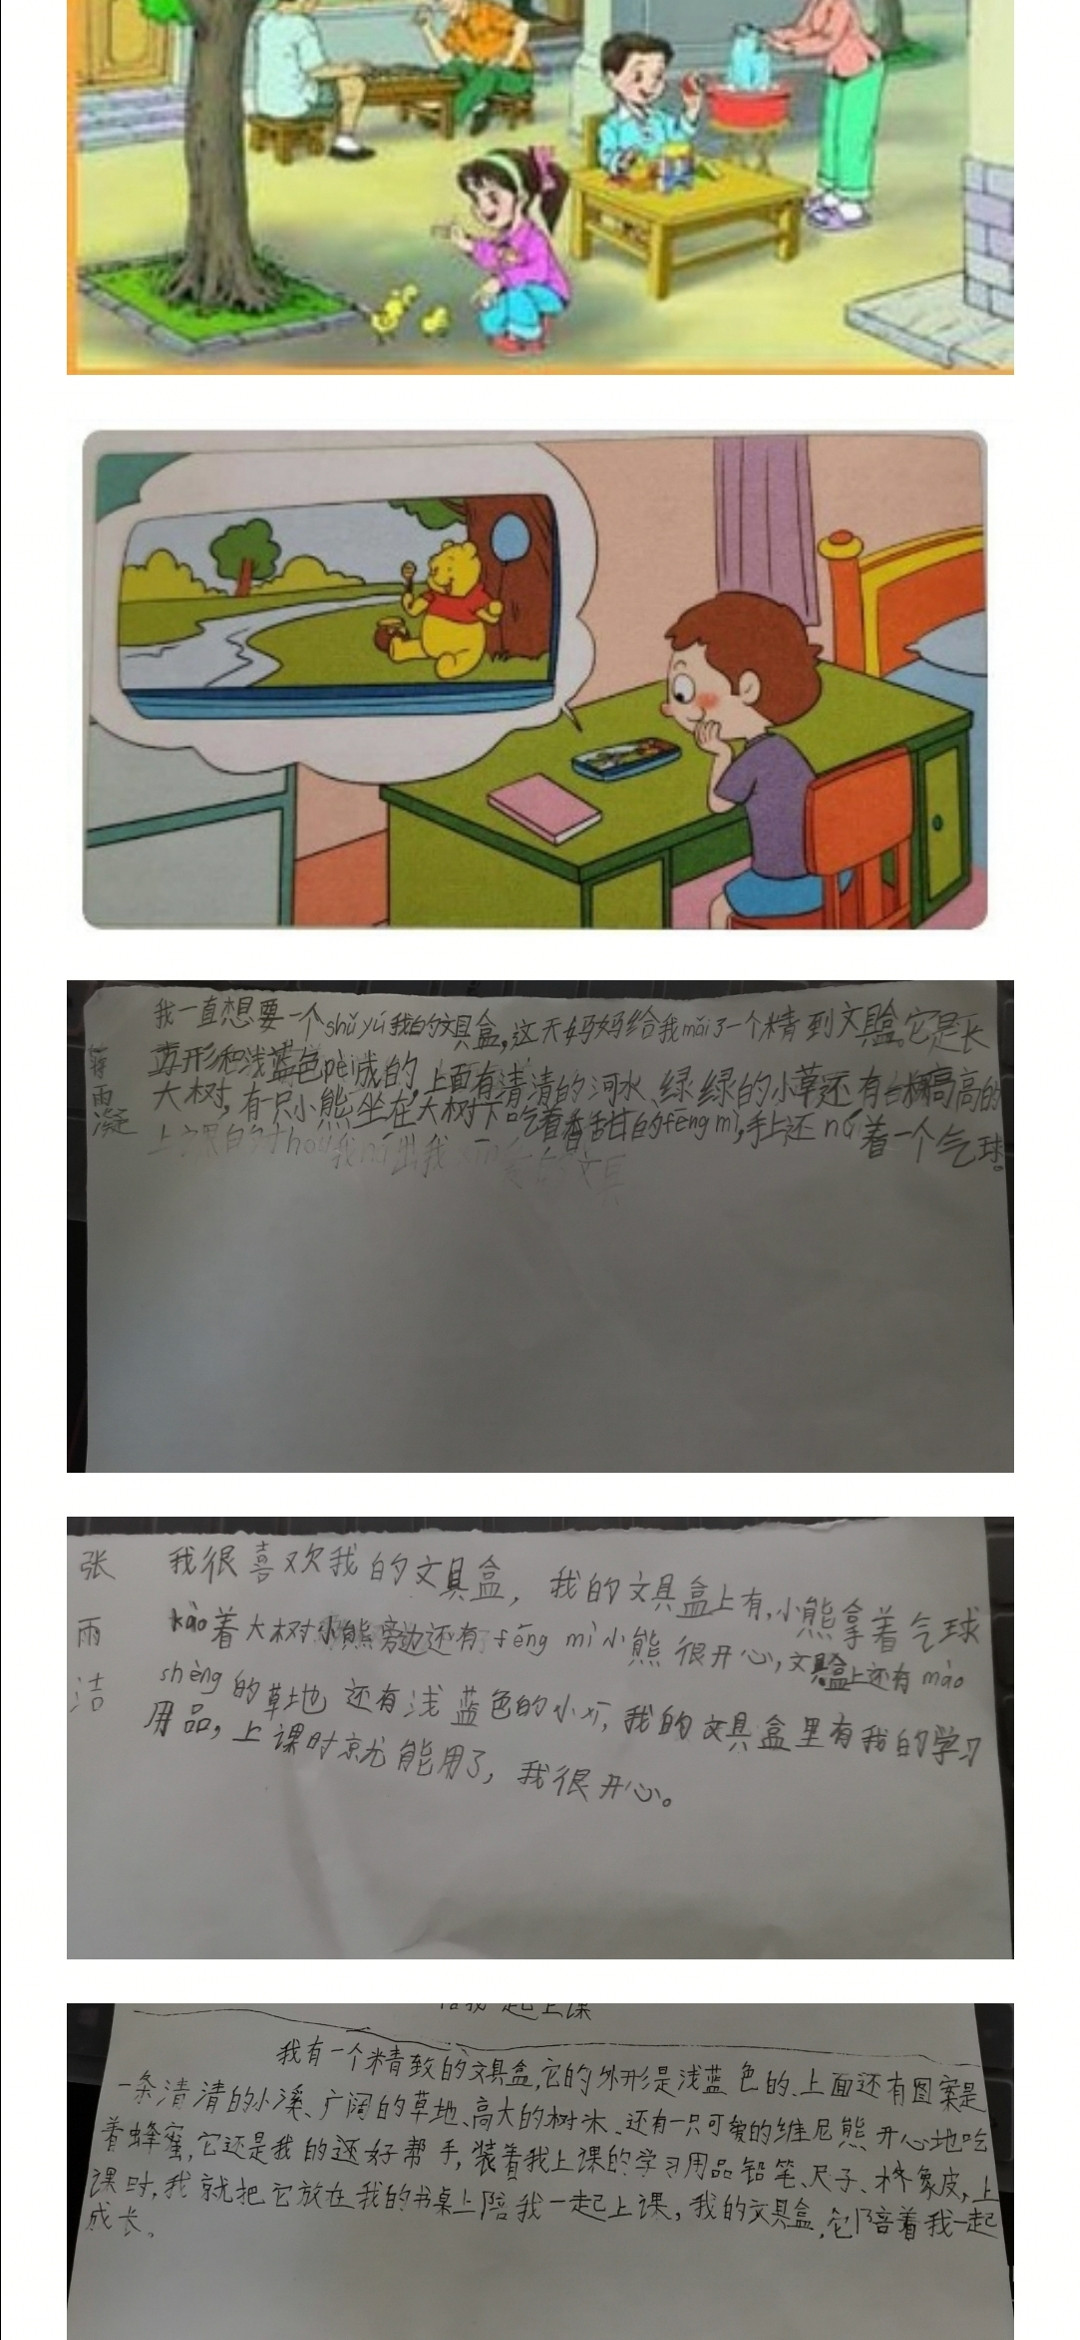 蒋雨凝
我一直想要一个shǔ yú我的文具盒,这天妈妈给我mǎi了一个精到文具盒。它是长
方形和浅蓝色pèi成的,上面有清清的河水、绿绿的小草还有高高的
大树,有只小熊坐在大树下吃着香甜的fēng mì,手上还ná着一个气球。
上课的时hou我ná出我
文具
张雨洁
我很喜欢我的文具盒,我的文具盒上有,小熊拿着气球
kào着大树小熊旁边还有fēng mì小熊很开心,文具盒上还有mào
shèng的草地 还有浅蓝色的小河,我的文具盒里有我的学习
用品,上课时就能用了,我很开心。
陪我一起上课
我有一个精致的文具盒,它的外形是浅蓝色的、上面还有图案是
一条清清的小溪、广阔的草地、高大的树木、还有一只可爱的维尼熊开心地吃
着蜂蜜,它还是我的还好帮手,装着我上课的学习用品铅笔、尺子、橡皮,上
课时,我就把它放在我的书桌上陪我一起上课,我的文具盒,它陪着我一起
成长、